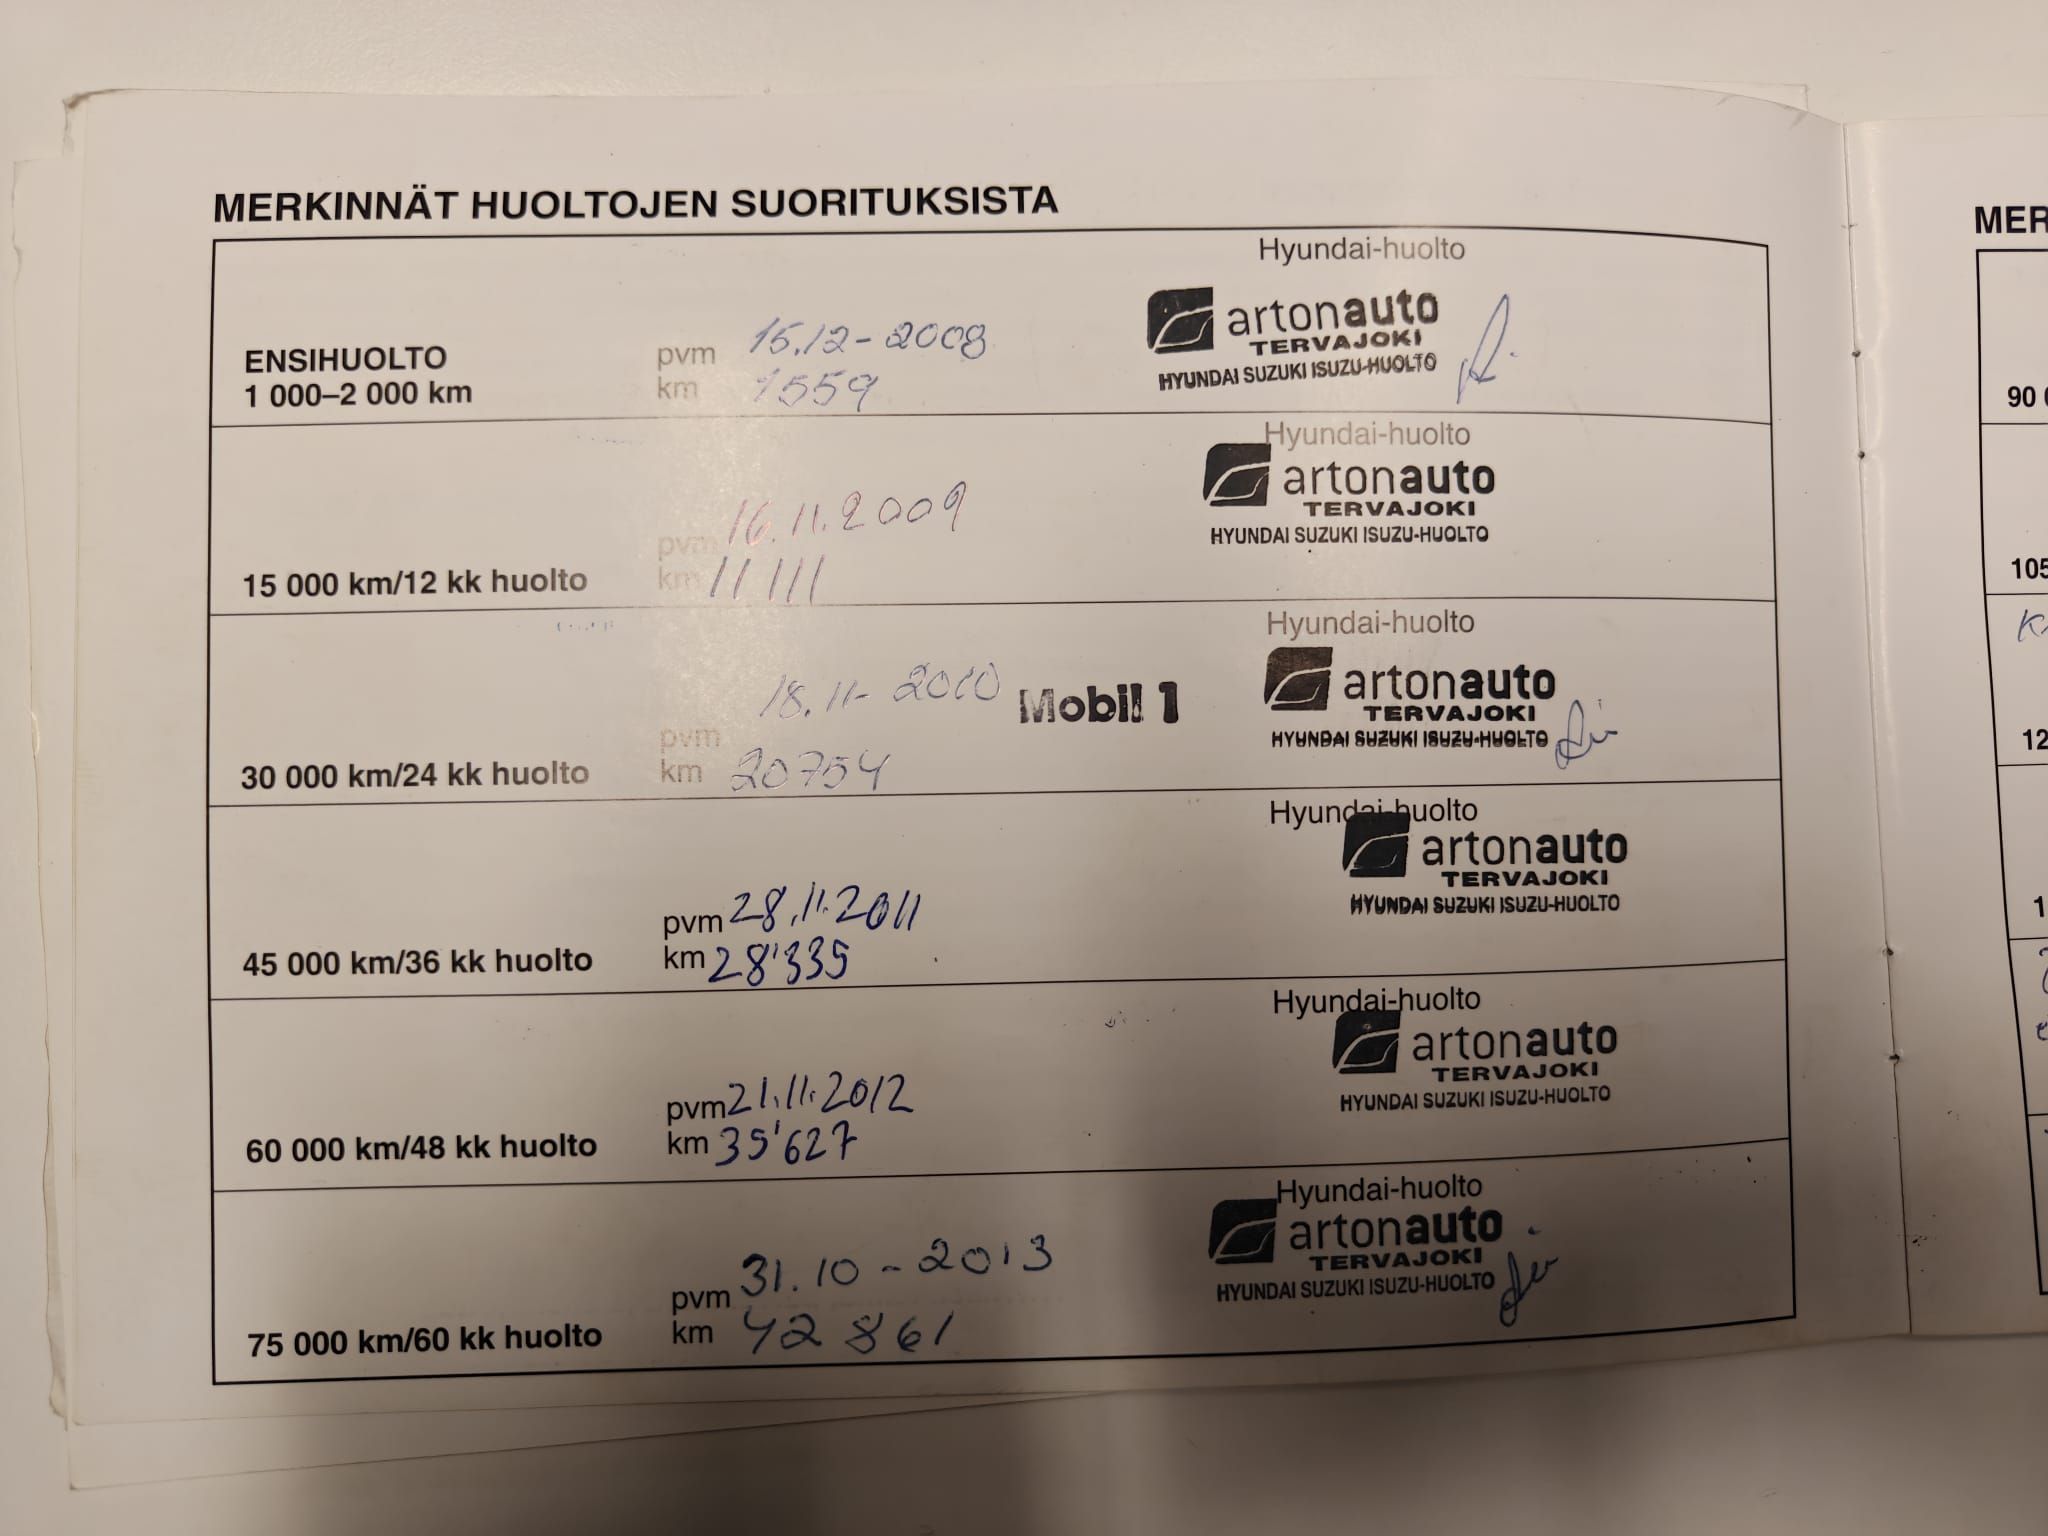 MERKINNÄT HUOLTOJEN SUORITUKSISTA
Hyundai-huolto
artonauto
TERVAJOKI
HYUNDAI SUZUKI ISUZU-HUOLTO
ENSIHUOLTO
1 000–2 000 km
pvm 15.12-2008
km 1559
Hyundai-huolto
artonauto
TERVAJOKI
HYUNDAI SUZUKI ISUZU-HUOLTO
15 000 km/12 kk huolto
pvm 16.11.2009
km 11 111
Hyundai-huolto
artonauto
TERVAJOKI
HYUNDAI SUZUKI ISUZU-HUOLTO
Mobil 1
30 000 km/24 kk huolto
pvm 18.11-2010
km 20754
Hyundai-huolto
artonauto
TERVAJOKI
HYUNDAI SUZUKI ISUZU-HUOLTO
45 000 km/36 kk huolto
pvm 28.11.2011
km 28'335
Hyundai-huolto
artonauto
TERVAJOKI
HYUNDAI SUZUKI ISUZU-HUOLTO
60 000 km/48 kk huolto
pvm 21.11.2012
km 35'627
Hyundai-huolto
artonauto
TERVAJOKI
HYUNDAI SUZUKI ISUZU-HUOLTO
75 000 km/60 kk huolto
pvm 31.10-2013
km 42 861
MER
90
105
12
1